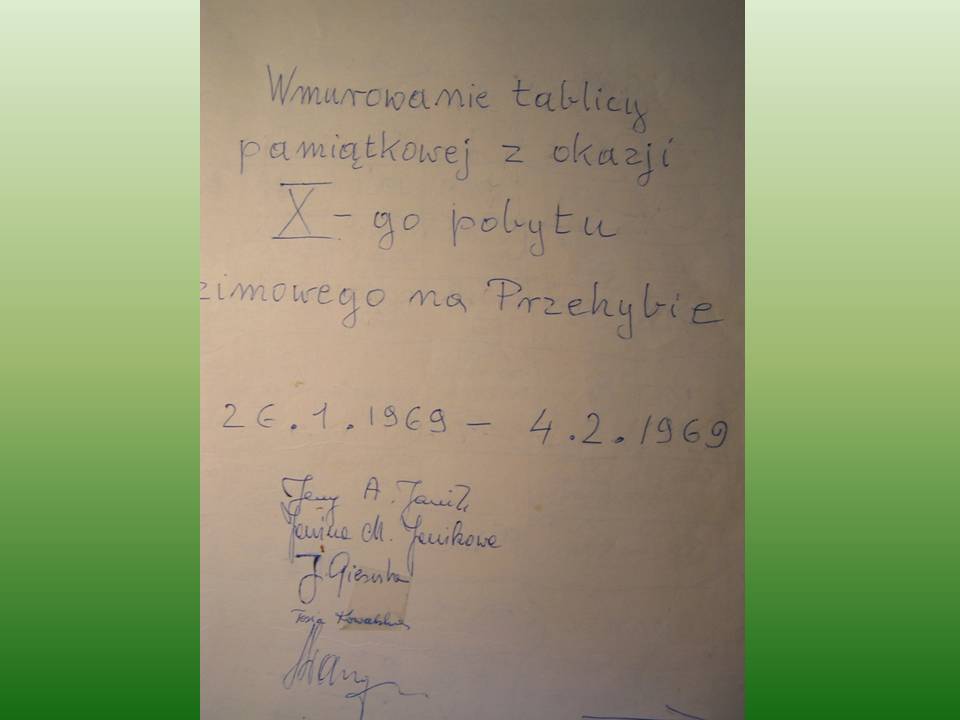 Wmurowanie tablicy
pamiątkowej z okazji
X - go pobytu
zimowego na Przehybie
26.1.1969 - 4.2.1969
Jerzy A. Janik
Janina M. Janikowa
J. Gierusha
Kowalska